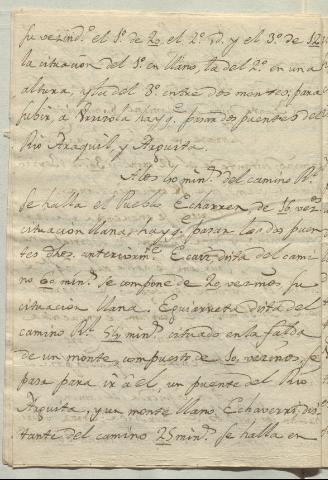 su vecind.º el 1.º de 20, el 2.º id. y el 3.º de 12
la situacion del 1.º en llano, la del 2.º en una
altura, y la del 3.º entre dos montes; para
subir à Urrizola hay q.e pasar dos puentes del
Rio Araquil, y Arguita.
A los 40 min.s del camino R.l
se halla el Pueblo Echarren, de 16 vez.s
situacion llana, hay q.e pasar los dos puen-
tes dhos. anteriorm.te Ecay, dista del cami-
no 60 min.s se compone de 20 vezinos, su
situacion llana. Eguiarreta dista del
camino R.l 54 min.s situado en la falda
de un monte, compuesto de 10, vezinos, se
pasa para ir à èl, un puente del Rio
Arguita, y un monte llano, Echaverri, dis-
tante del camino 25 min.s se halla en